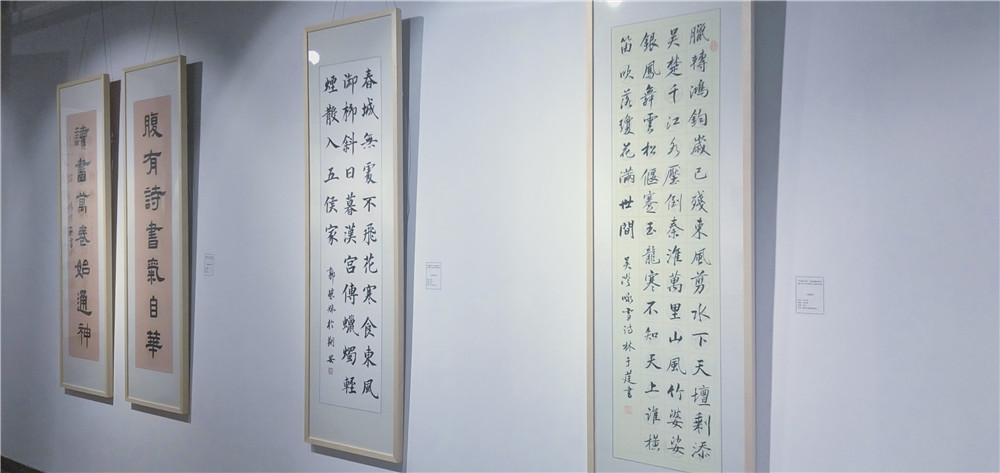 臘轉鴻鈞歲已殘東風剪水下天壇剩添
吳楚千江水壓倒秦淮萬里山風竹婆娑
銀鳳舞雲松偃蹇玉龍寒不知天上誰橫
笛吹落瓊花滿世間 吳澄詠雪詩林子 書
春城無處不飛花寒食東風
御柳斜日暮漢宮傳蠟燭輕
煙散入五侯家
腹有詩書氣自華
讀書萬卷始通神